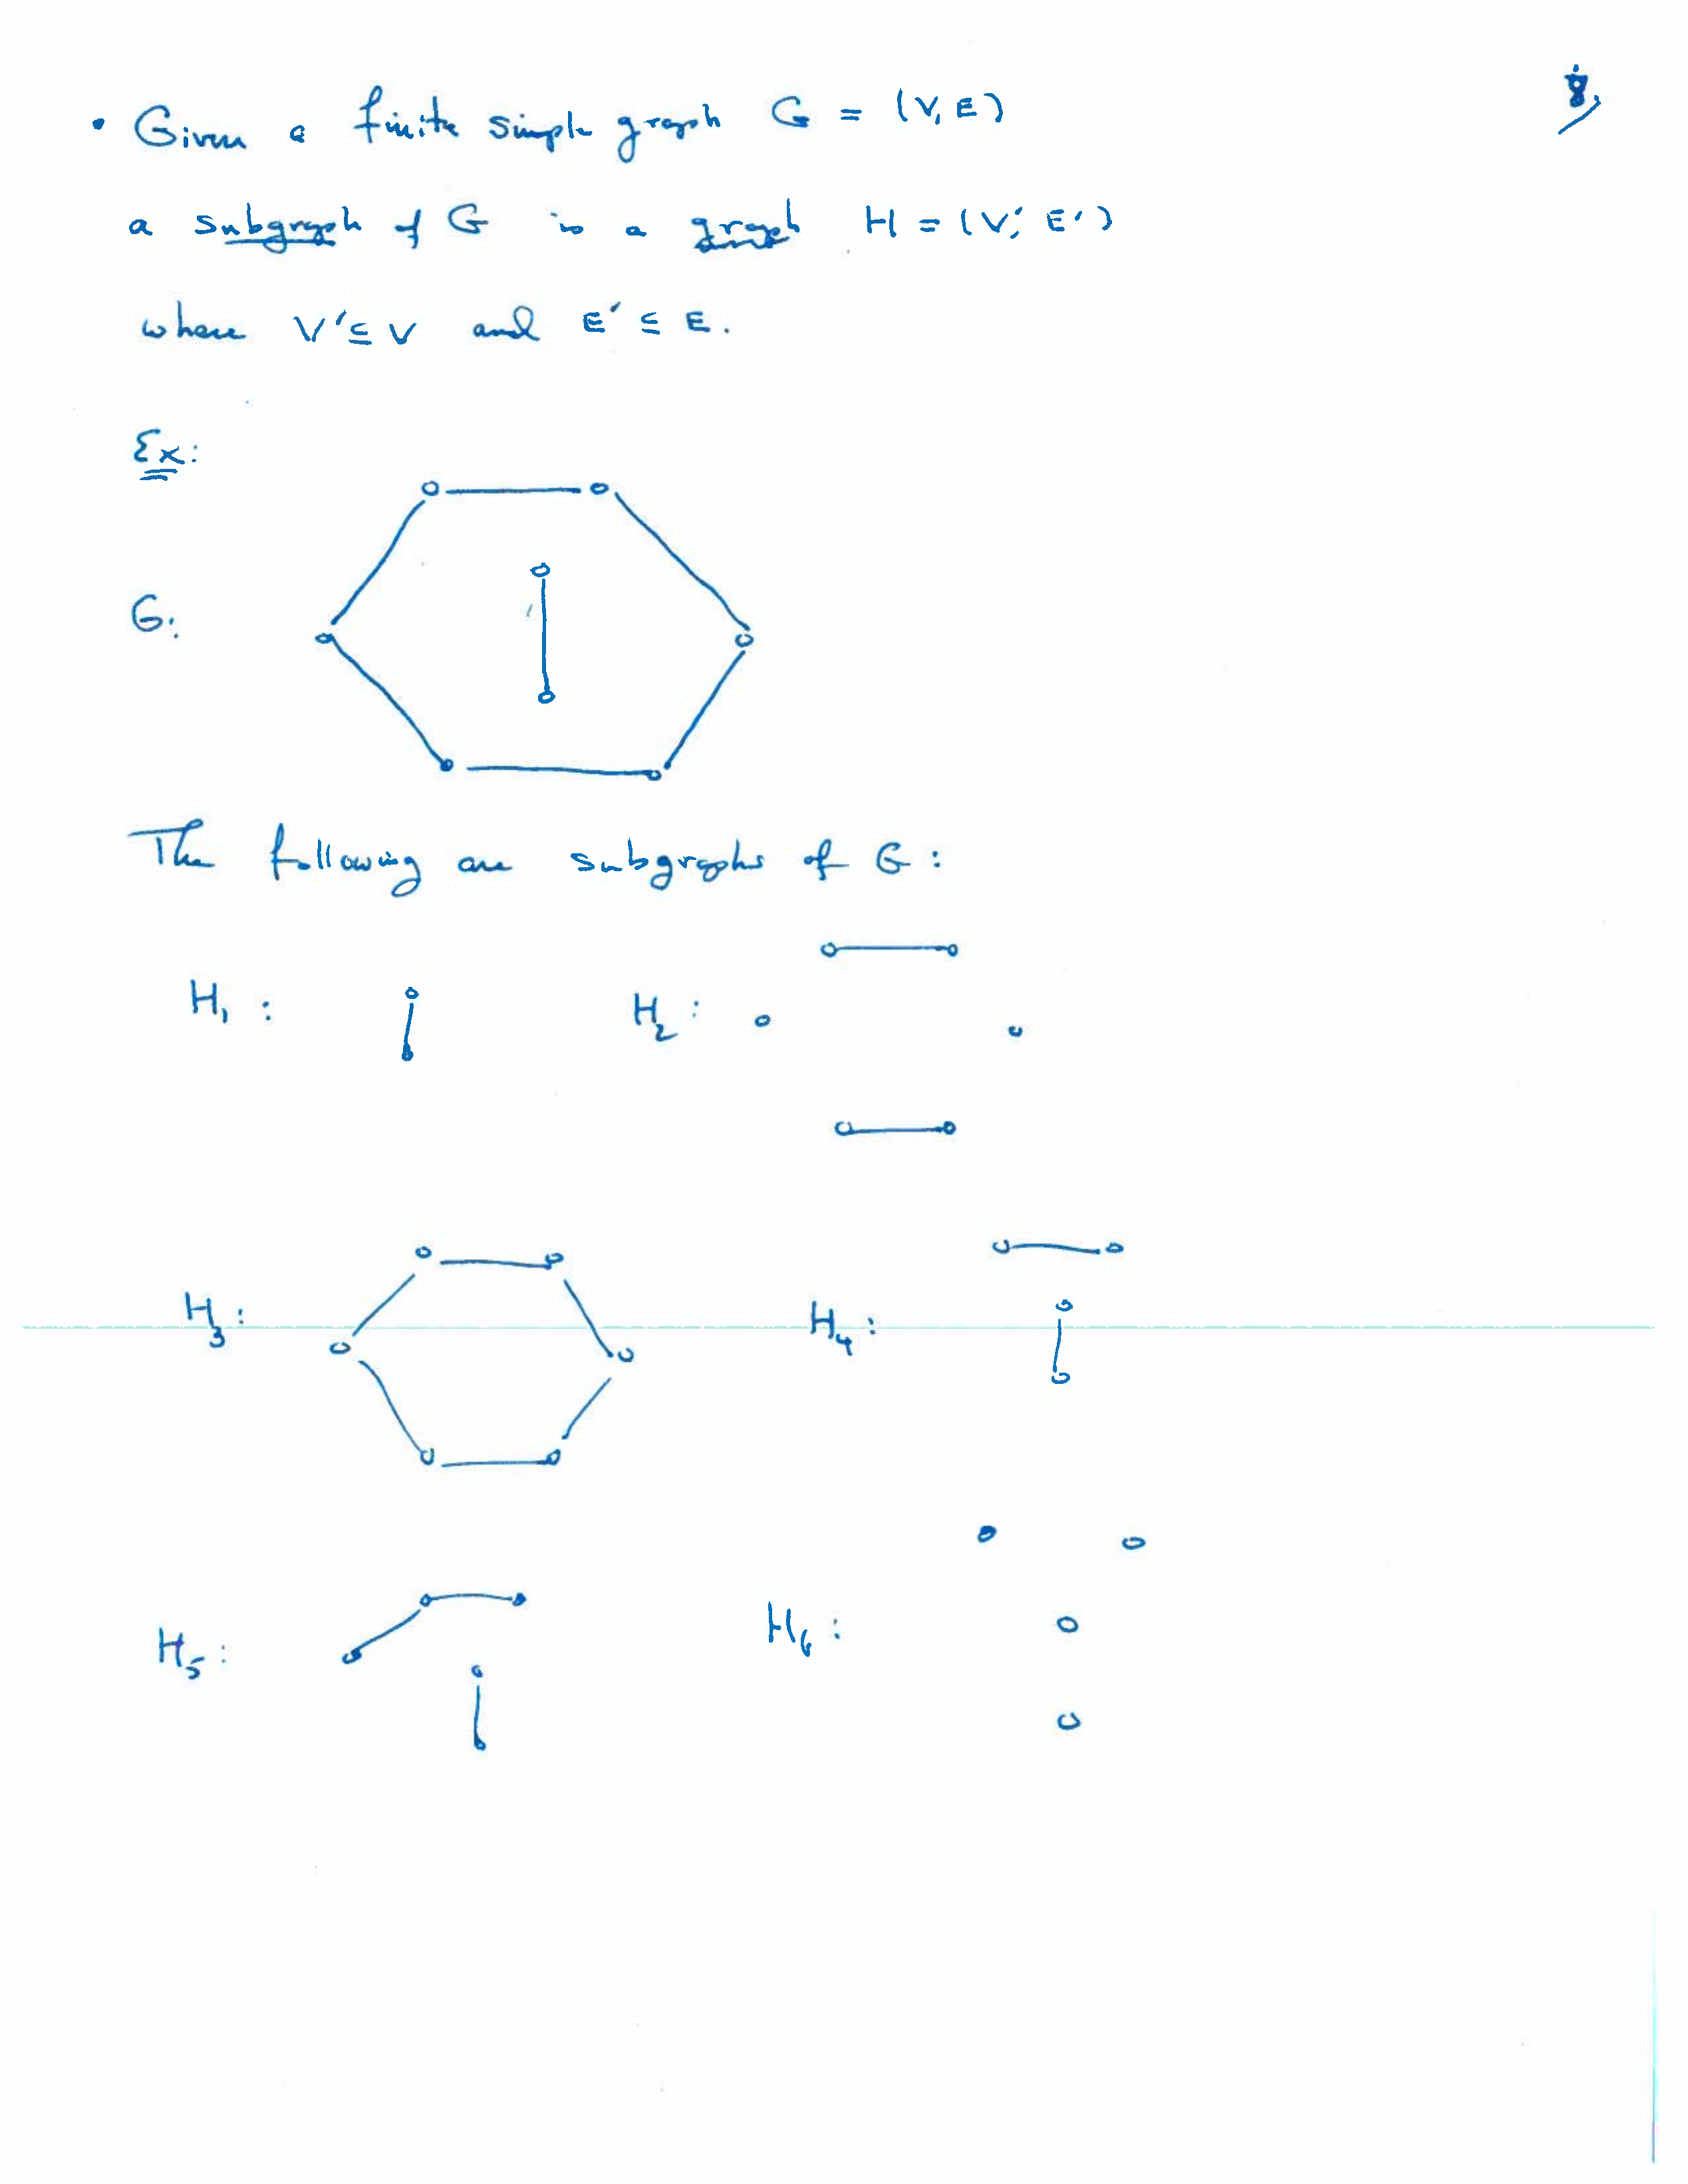 8,
• Given a finite simple graph G = (V, E)
a subgraph of G is a graph H = (V', E')
where V' ⊆ V and E' ⊆ E.
Ex:
G:
The following are subgraphs of G:
H₁ : H₂ :
H₃ : H₄ :
H₅ : H₆ :